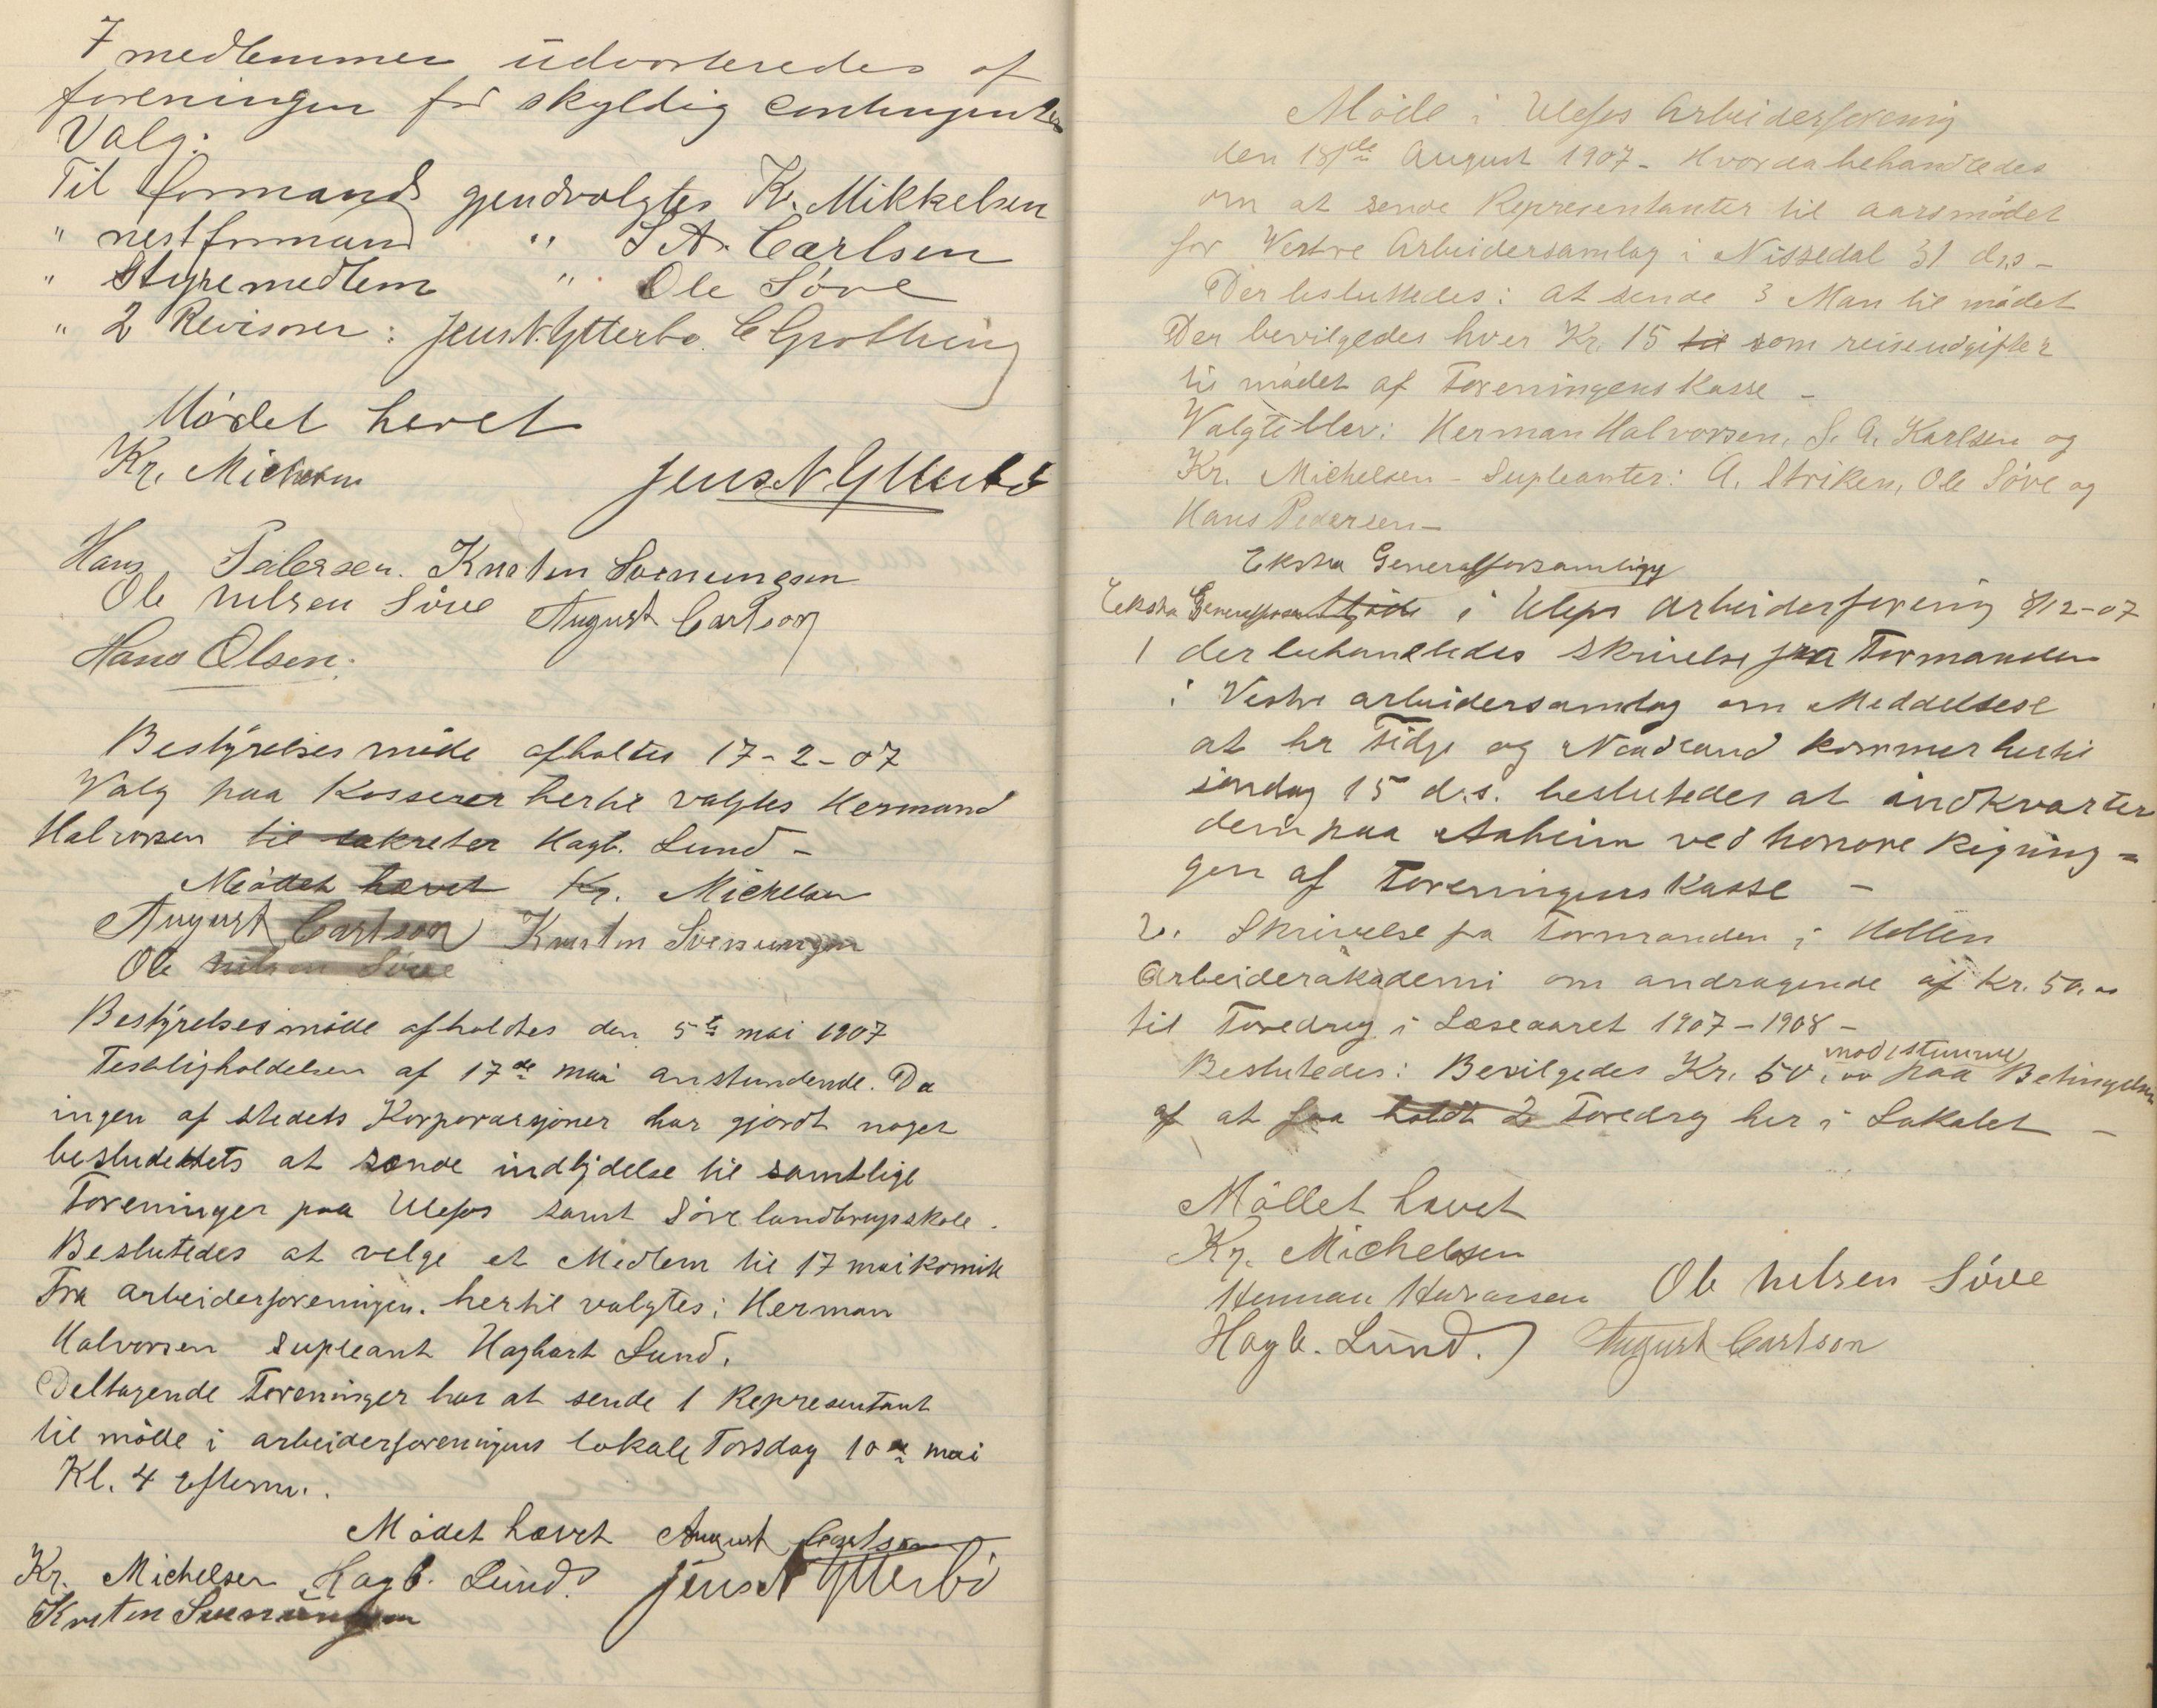 7 medlemmer udvoteredes af
foreningen for skyldig contingenter
Valg:
Til formand gjendvalgtes Kr. Mikkelsen
" nestformand " S A. Carlsen
" Styremedlem " Ole Söve
" 2 Revisorer : Jens N. Ytterbø. C Grothing
Mødet hevet
Kr. Michelsen Jens N. Ytterbö
Hans Pedersen. Knsten Svenungsen
Ole Nilsen Söve August Carlson
Hans Olsen.
Bestÿrelsesmöde afholdtes 17-2-07
Valg paa Kasserer hertil valgtes Hermand
Halvorsen til sekretær Hagb. Lund –
Mödet hævet Kr. Michelsen
August Carlson Knsten Svenungsen
Ole Nilsen Söve
Bestÿrelsesmöde afholdtes den 5te mai 1907
Festligholdelsen af 17de mai anstundende. Da
ingen af stedets Korporasjoner har gjordt noget
besludettets at sænde indbjdelse til samtlige
Foreninger paa Ulefos samt Söve landbrugsskole.
Beslutedes at velge et Medlem til 17 maikomite
Fra arbeiderforeningen. hertil valgtes: Herman
Halvorsen supleant Hagbart Lund.
Deltagende Foreninger har at sende 1 Representant
til möde i arbeiderforeningens lokale Torsdag 10de mai
Kl. 4 efterm..
Mödet hævet August Carlson
Kr. Michelsen Hagb. Lund. Jens N Ytterbö
Knsten Svenungsen
Möde i Ulefos Arbeiderforening
den 18de August 1907 – Hvorda behandledes
om at sende Representanter til aarsmödet
for Vestre Arbeidersamlag i Nissedal 31 ds –
Der besluttedes: at sende 3 Man til mödet
Der bevilgedes hver Kr. 15 til som reiseudgifter
til mödet af Foreningens Kasse –
Valgte blev: Herman Halvorsen, S. A. Karlsen og
Kr. Michelsen – Supleanter: A. Striken, Ole Söve og
Hans Pedersen –
Ekstra Generalforsamligg
Ekstra Generalforsam Möde i Ulefos Arbeiderforening 8/12-07
1 der behandledes skrivelse fra Formanden
i Vestre arbeidersamlag om Meddelsese
at hr Tidje og Nordsand kommer hertil
söndag 15 d.s. beslutedes at indkvarter
dem paa Aaheim ved honore Rigning =
gen af Foreningens Kasse –
2. Skrivelse fra Formanden i Hollen
Arbeiderakademi om andragende af Kr. 50.00
til Foredrag i Læseaaret 1907–1908 –
modstumme
Beslutedes: Bevilgedes Kr. 50,00 paa Betingelsen
af at faa holdt 2 Foredrag her i Lokalet –
Möllet hævet
Kr. Michelsen
Herman Halvorsen Ole Nilsen Söve
Hagb. Lund. August Carlson